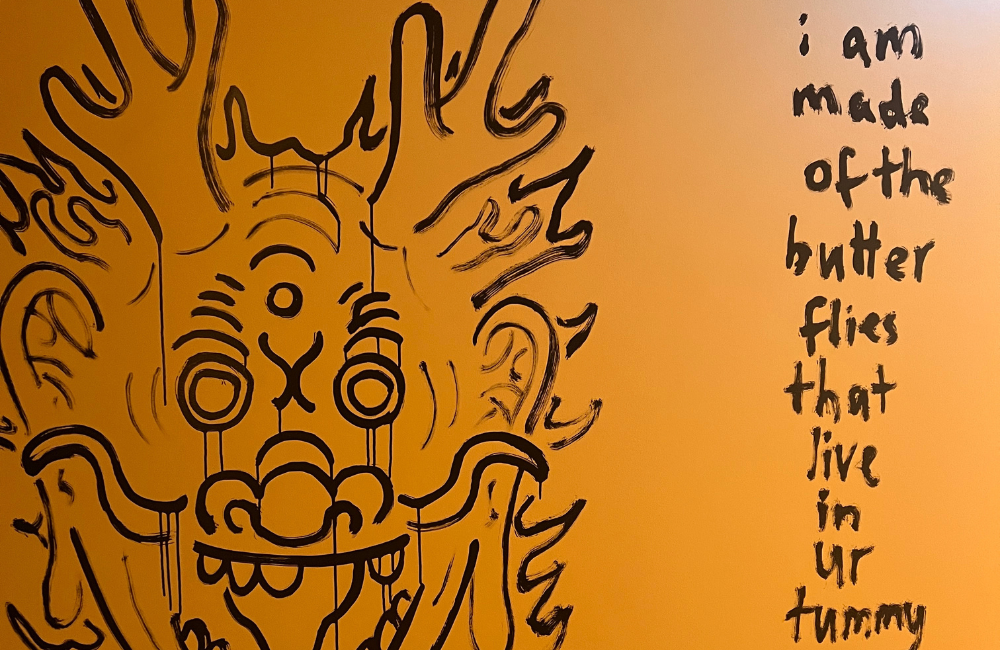 i am
made
of the
butter
flies
that
live
in
ur
tummy